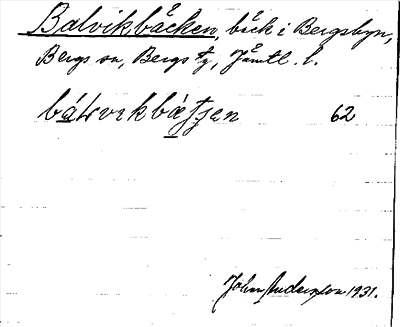 Balvikbäcken, bäck i Bergsbyn,
Bergs sn, Bergs tg, Jämtl. l.
62
John Anderson 1931.